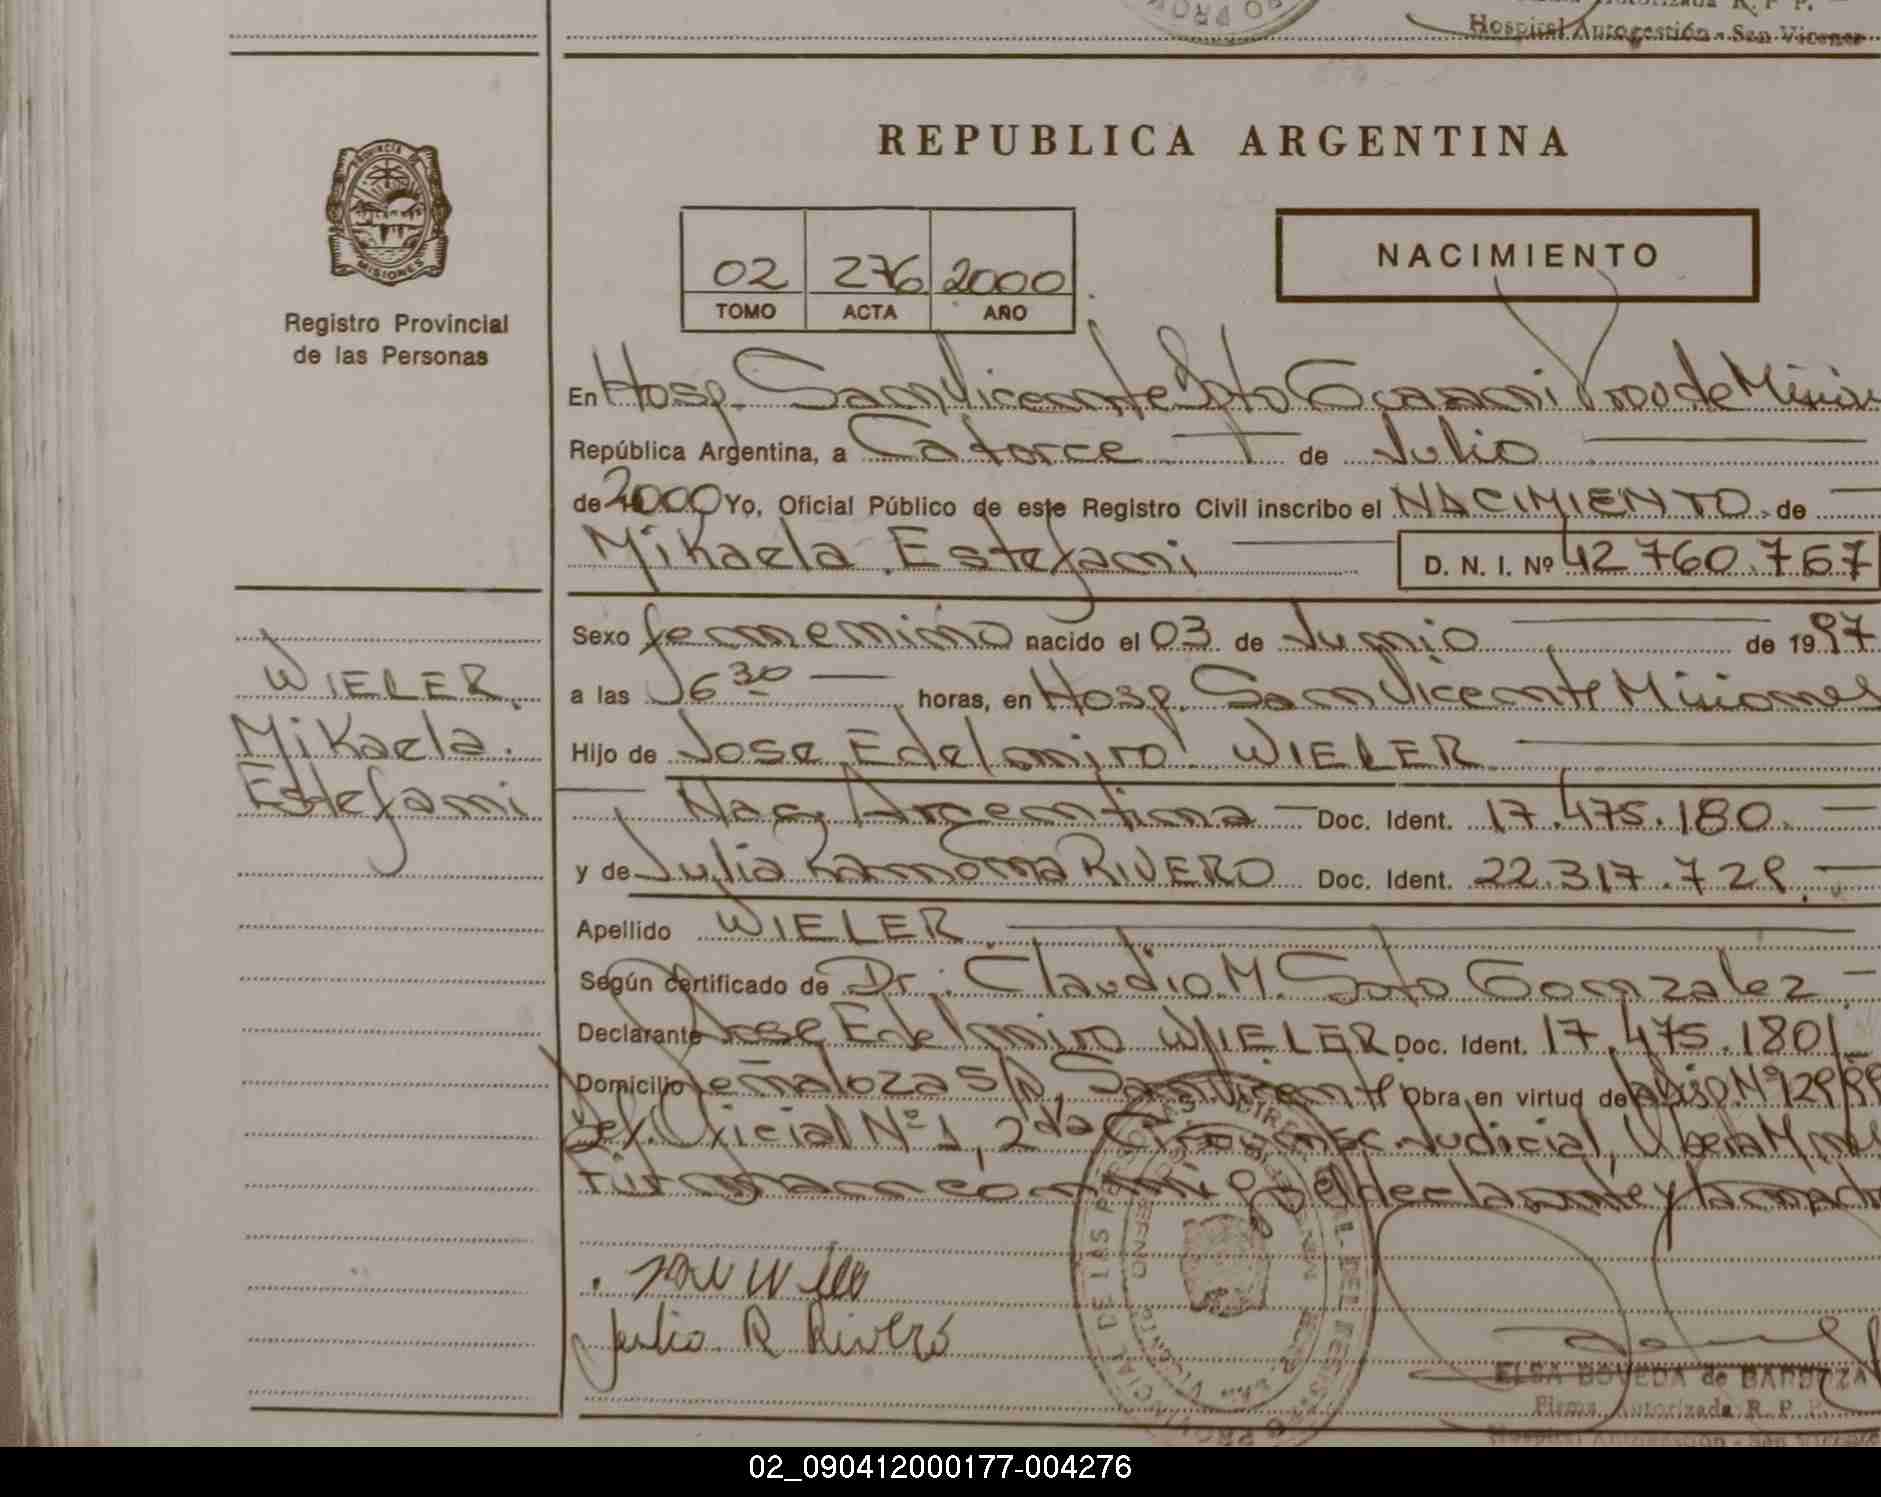 Hospital Autogestión - San Vicente
REPUBLICA ARGENTINA
PROVINCIA DE
MISIONES
Registro Provincial
de las Personas
02 276 2000
TOMO ACTA AÑO
NACIMIENTO
En Hosp. San Vicente Dpto Guarani Prov de Mision
República Argentina, a Catorce de Julio
de 2000 Yo, Oficial Público de este Registro Civil inscribo el NACIMIENTO de
Mikaela Estefani D. N. I. Nº 42.760.767
Sexo femenino nacido el 03 de Junio de 1997
a las 16 30 horas, en Hosp. San Vicente Misiones
Hijo de Jose Edelmiro WIELER
Nac. Argentina Doc. Ident. 17.475.180
y de Julia Ramona RIVERO Doc. Ident. 22.317.729
Apellido WIELER
Según certificado de Dr. Claudio M. Soto Gonzalez
Declarante Jose Edelmiro WIELER Doc. Ident. 17.475.180
Domicilio Peñaloza S/N, San Vicente Obra en virtud de Nº 129/99
Def. Oficial Nº 1, 2da Circunsc. Judicial, Obera Mnes
firman conmigo el declarante y la madre
WIELER
Mikaela
Estefani
Julia R Rivero
ELSA BOVEDA de
Firma Autorizada R. P. P.
Hospital Autogestión - San Vicente
02_090412000177-004276